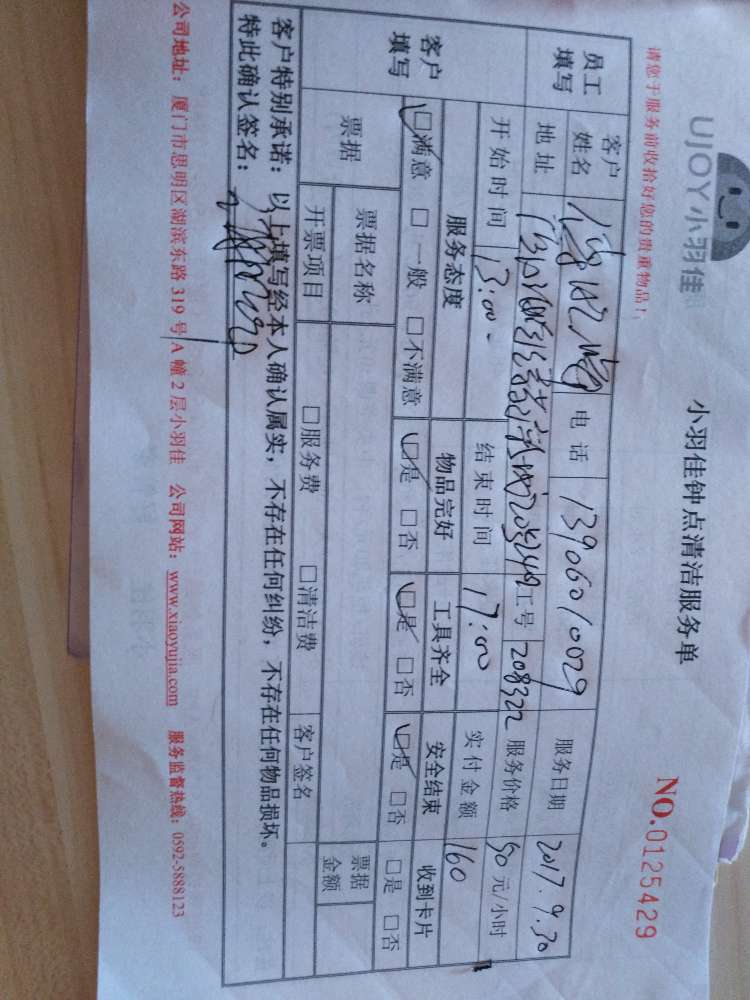 UJOY小羽佳
小羽佳钟点清洁服务单
请您于服务前收拾好您的贵重物品!
NO.0125429
员工填写
客户姓名
电话 13906010029
服务日期 2017.9.30
地址
工号 208322
服务价格
元/小时
开始时间 13:00
结束时间 17:00
实付金额 160
客户填写
服务态度 物品完好 工具齐全 安全结束 收到卡片
☑满意 □一般 □不满意 ☑是 □否 ☑是 □否 ☑是 □否 □是 □否
票据
票据名称
票据金额
开票项目 □服务费 □清洁费 客户签名
客户特别承诺:以上填写经本人确认属实,不存在任何纠纷,不存在任何物品损坏。
特此确认签名:
公司地址:厦门市思明区湖滨东路 319 号 A 幢 2 层小羽佳 公司网站:www.xiaoyujia.com 服务监督热线:0592-5888123